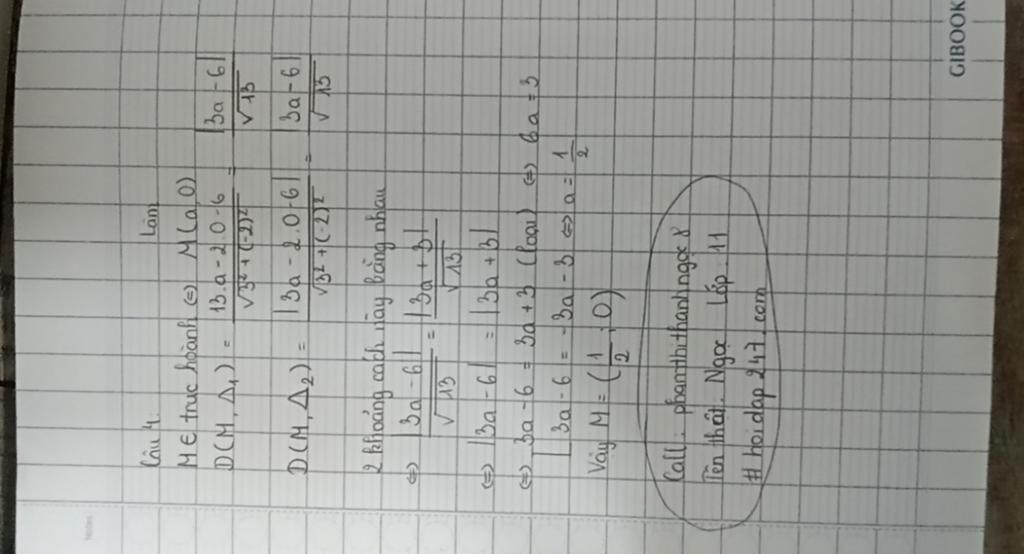 Câu 4: Làm
M ∈ trục hoành ⇔ M(a,0)
D(M, Δ1) = |3.a - 2.0 - 6| / √3² + (-2)² = |3a - 6| / √13
D(M, Δ2) = |3a - 2.0 - 6| / √3² + (-2)² = |3a - 6| / √13
2 khoảng cách này bằng nhau
⇔ |3a - 6| / √13 = |3a + 3| / √13
⇔ |3a - 6| = |3a + 3|
⇔ [ 3a - 6 = 3a + 3 (loại) ⇔ 6a = 3
3a - 6 = -3a - 3 ⇔ a = 1/2
Vậy M = (1/2 ; 0)
Call : phamthithanhngoc8
Tên thật : Ngọc Lớp : 11
# hoidap247.com
GIBOOK